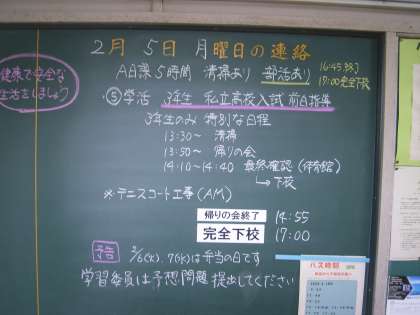 2月 5日 月曜日の連絡
A日課5時間 清掃あり 部活あり 16:45終了
17:00完全下校
健康で安全な
生活をしましょう
⑤学活 3年生 私立高校入試 前日指導
3年生のみ 特別な日程
13:30〜 清掃
13:50〜 帰りの会
14:10〜14:40 最終確認(体育館)
↳下校
※テニスコート工事(AM)
帰りの会終了 14:55
完全下校 17:00
予告 2/6(火)、7(水)は弁当の日です
学習委員は予想問題提出してください
バス時間